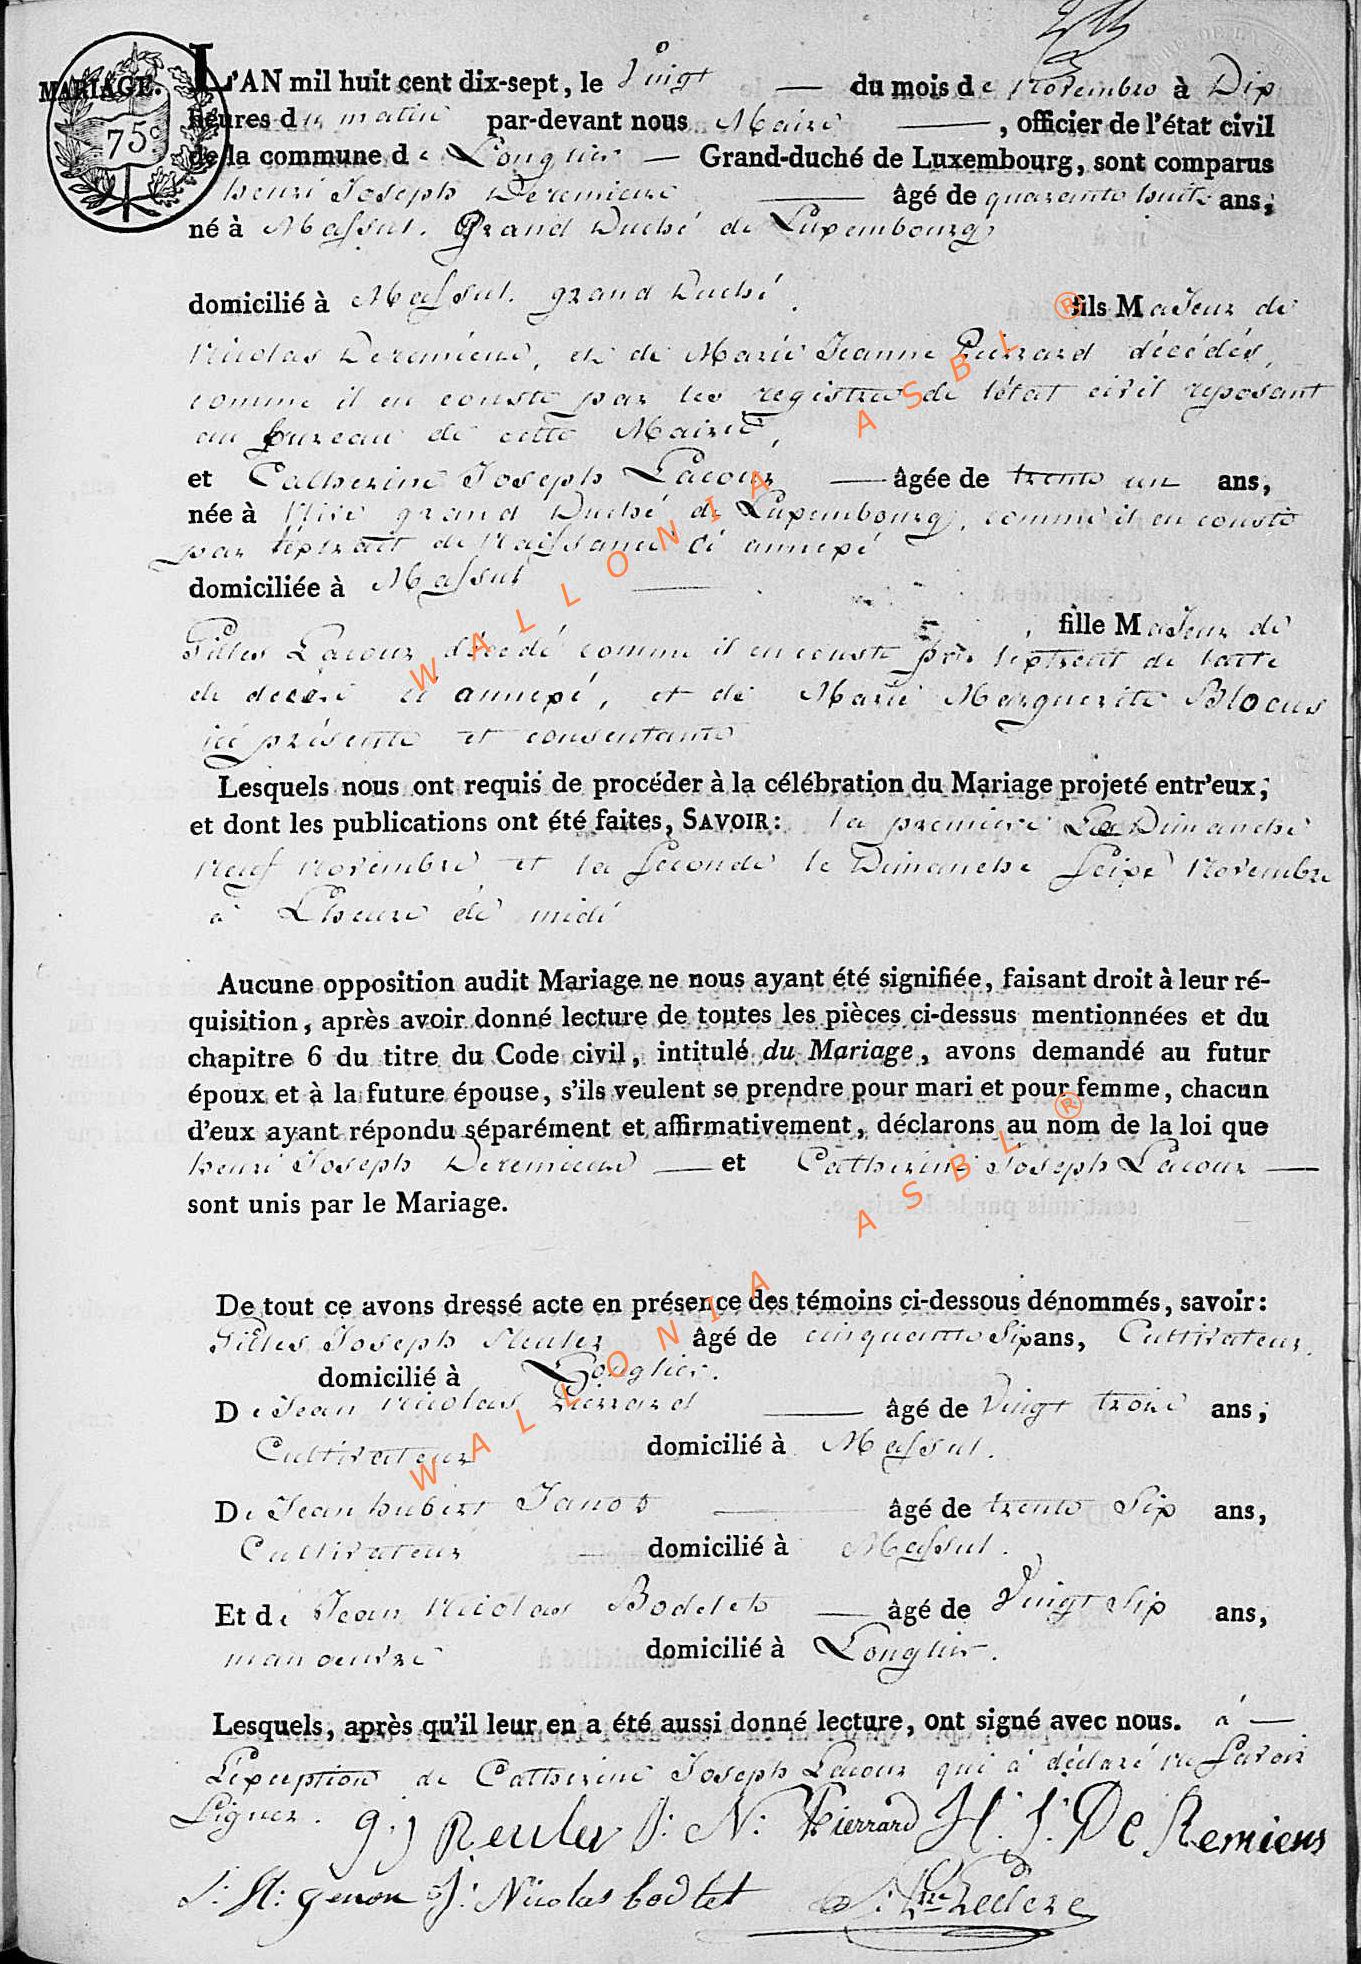 MARIAGE.
75 c
L'AN mil huit cent dix-sept, le Vingt du mois de Novembre à Dix
heures du matin par-devant nous Maire, officier de l'état civil
de la commune de Longlier Grand-duché de Luxembourg, sont comparus
henri Joseph Deremiens âgé de quarante huit ans,
né à Massul. Grand Duché de Luxembourg
domicilié à Massul. grand Duché fils Majeur de
Nicolas Deremiens, et de Marie Jeanne Pierrard décédés,
comme il en conste par les registres de l'état civil reposant
au bureau de cette Mairie,
et Catherine Joseph Lacour âgée de trente un ans,
née à grand Duché de Luxembourg, comme il en conste
par l'extrait de Naissance ci annexé
domiciliée à Massul
fille Majeur de
Gilles Lacour décédé comme il en conste par l'extrait de l'acte
de decès ci annexé, et de Marie Marguerite Blocus
ici présente et consentante
Lesquels nous ont requis de procéder à la célébration du Mariage projeté entr'eux,
et dont les publications ont été faites, SAVOIR: la premiere Le Dimanche
Neuf Novembre et la seconde le Dimanche seize Novembre
à L'heure de midi
Aucune opposition audit Mariage ne nous ayant été signifiée, faisant droit à leur ré-
quisition, après avoir donné lecture de toutes les pièces ci-dessus mentionnées et du
chapitre 6 du titre du Code civil, intitulé du Mariage, avons demandé au futur
époux et à la future épouse, s'ils veulent se prendre pour mari et pour femme, chacun
d'eux ayant répondu séparément et affirmativement, déclarons au nom de la loi que
henri Joseph Deremiens et Catherine Joseph Lacour
sont unis par le Mariage.
De tout ce avons dressé acte en présence des témoins ci-dessous dénommés, savoir:
Gilles Joseph Reuler âgé de cinquante Six ans, Cultivateur.
domicilié à Longlier.
De Jean Nicolas Pierrard âgé de Vingt trois ans;
Cultivateur domicilié à Massul.
De Jean hubert âgé de trente Six ans,
Cultivateur domicilié à Massul.
Et de Jean Nicolas Bodelet âgé de Vingt Six ans,
manoeuvre domicilié à Longlier.
Lesquels, après qu'il leur en a été aussi donné lecture, ont signé avec nous. à
L'exception de Catherine Joseph Lacour qui à déclaré ne Savoir
Signer. g: j Reuler J: N: Pierrard H. J. De Remiens
J: H: genon J: Nicolas bodlet Leclere
WALLONIA ASBL ®
WALLONIA ASBL ®